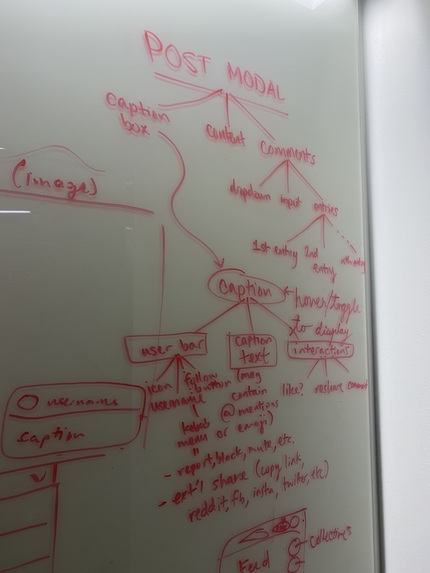 POST MODAL
caption
box
content
Comments
(image)
dropdown input entries
1st entry 2nd
entry
nth entry
caption
hover/toggle
to display
user bar
caption
text
interactions
icon follow
button
username
(may
contain
@ mentions
or emoji)
like? comment
kebab
menu
- report, block, mute, etc.
- ext'l share (copy, link,
reddit, fb, insta, twitter, etc)
username
caption
Feed
collectives